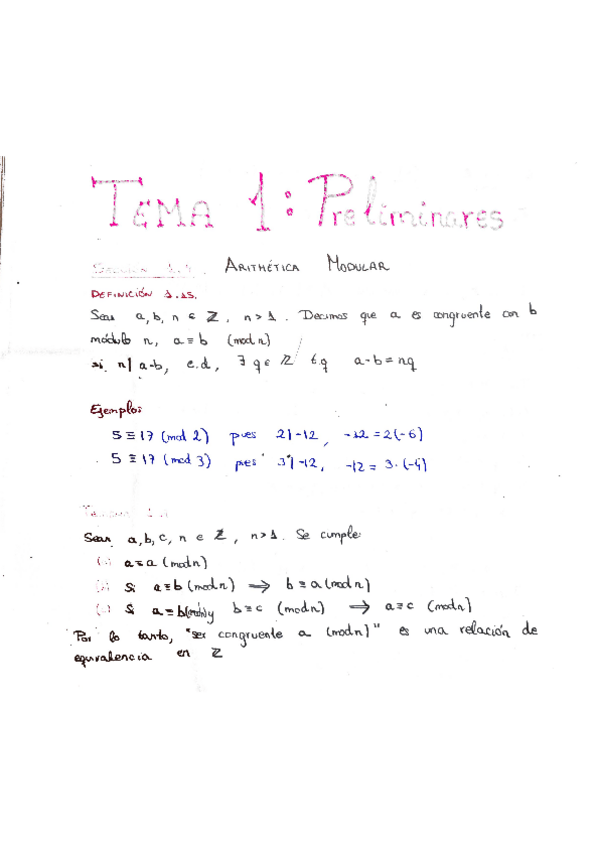 TEMA 1: Preliminares
ARITMÉTICA MODULAR
DEFINICIÓN 1.15.
Sean a, b, n ∈ ℤ, n > 1. Decimos que a es congruente con b
módulo n, a ≡ b (mod n)
si n | a-b, e.d, ∃ q ∈ ℤ t.q a-b = nq
Ejemplo:
5 ≡ 17 (mod 2) pues 2 | -12, -12 = 2(-6)
5 ≡ 17 (mod 3) pues 3 | -12, -12 = 3·(-4)
Sean a, b, c, n ∈ ℤ, n > 1. Se cumple:
a ≡ a (mod n)
Si a ≡ b (mod n) ⟹ b ≡ a (mod n)
Si a ≡ b (mod n) y b ≡ c (mod n) ⟹ a ≡ c (mod n)
Por lo tanto, "ser congruente a (mod n)" es una relación de
equivalencia en ℤ